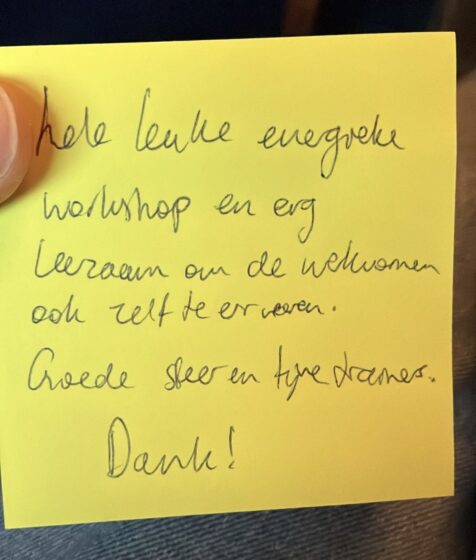 hele leuke energieke
workshop en erg
leerzaam om de werkvormen
ook zelf te ervaren.
Goede sfeer en fijne trainer.
Dank!